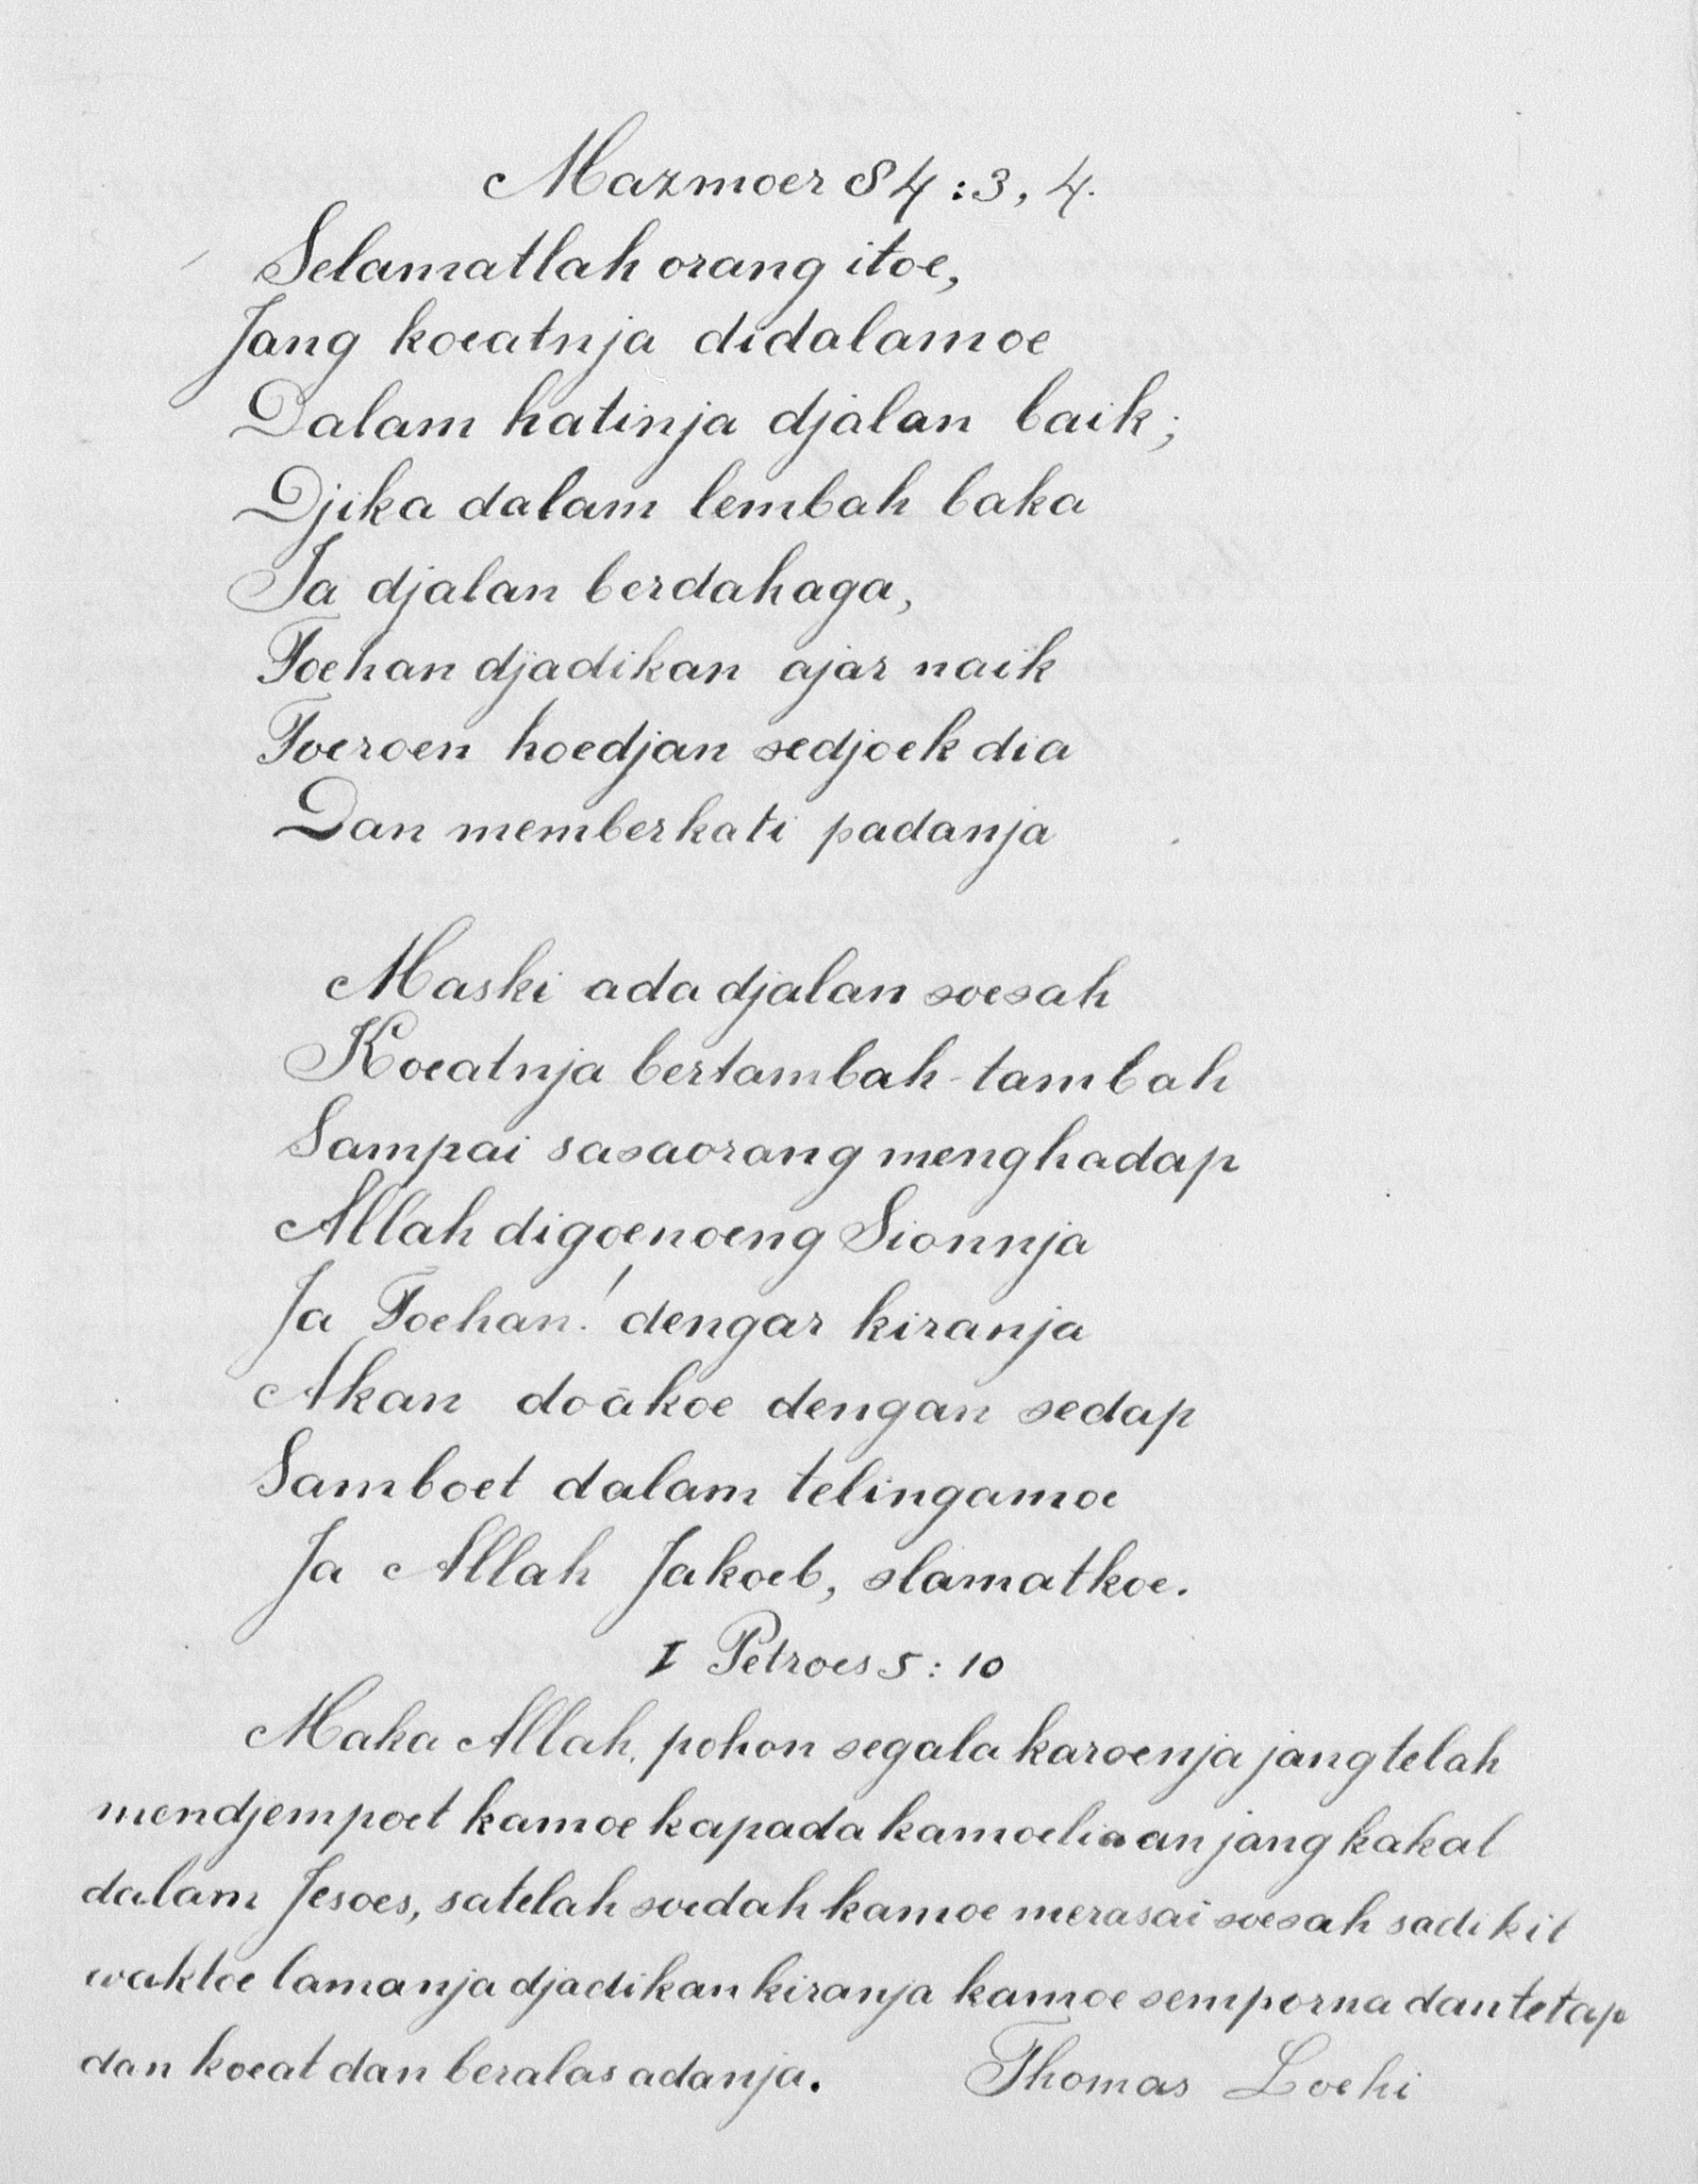 Mazmoer 84:3, 4.
Selamatlah orang itoe,
Jang koeatnja didalamoe
Dalam hatinja djalan baik;
Djika dalam lembah baka
Ia djalan berdahaga,
Toehan djadikan ajar naik
Toeroen hoedjan sedjoek dia
Dan memberkati padanja
Maski ada djalan soesah
Koeatnja bertambah-tambah
Sampai sasaorang menghadap
Allah digoenoeng Sionnja
Ja Toehan! dengar kiranja
Akan doākoe dengan sedap
Samboet dalam telingamoe
Ja Allah Jakoeb, slamatkoe.
I Petroes 5:10
Maka Allah, pohon segala karoenja jang telah
mendjempoet kamoe kapada kamoeliaan jang kakal
dalam Jesoes, satelah soedah kamoe merasai soesah sadikit
waktoe lamanja djadikan kiranja kamoe semporna dan tetap
dan koeat dan beralas adanja. Thomas Loehi